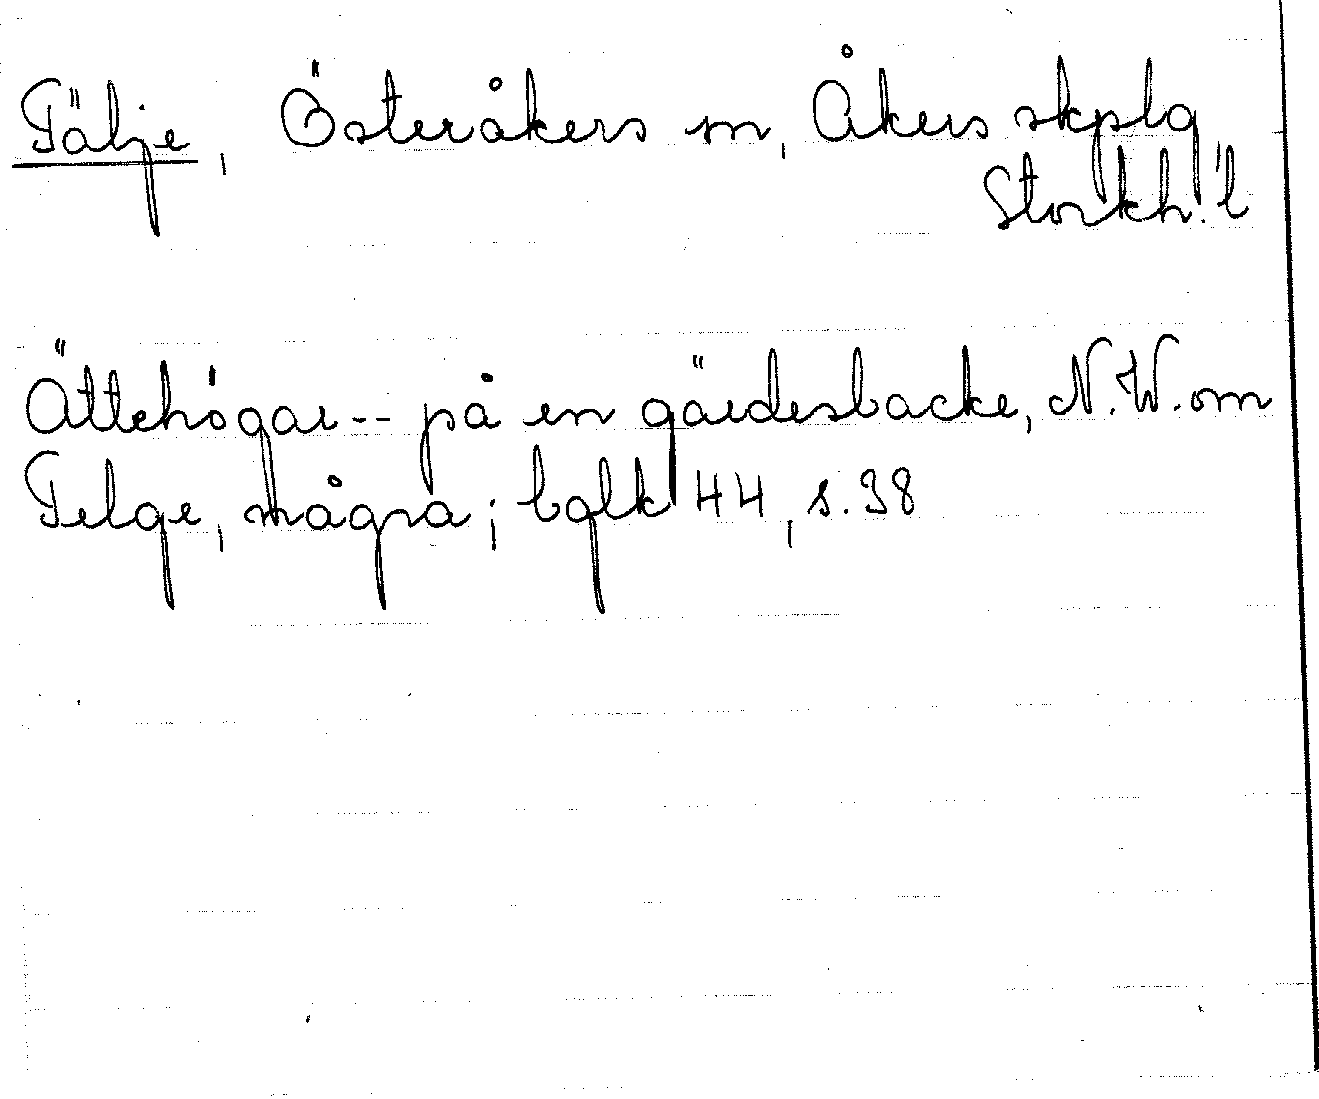 Tälje, Österåkers sn, Åkers skplg
Stockh. l
Ättehögar -- på en gärdesbacke, N.W. om
Telge, några; bqlk 44, s. 38